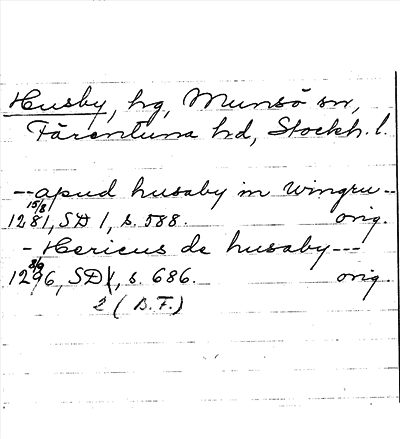 Husby, hg, Munsö sn,
Färentuna hd, Stockh. l.
-- apud husaby in wingru --
15/8
1281, SD 1, s. 588. orig.
- Hericus de husaby ---
8/9
1296, SD 1, s. 686. orig.
2 (B.F.)